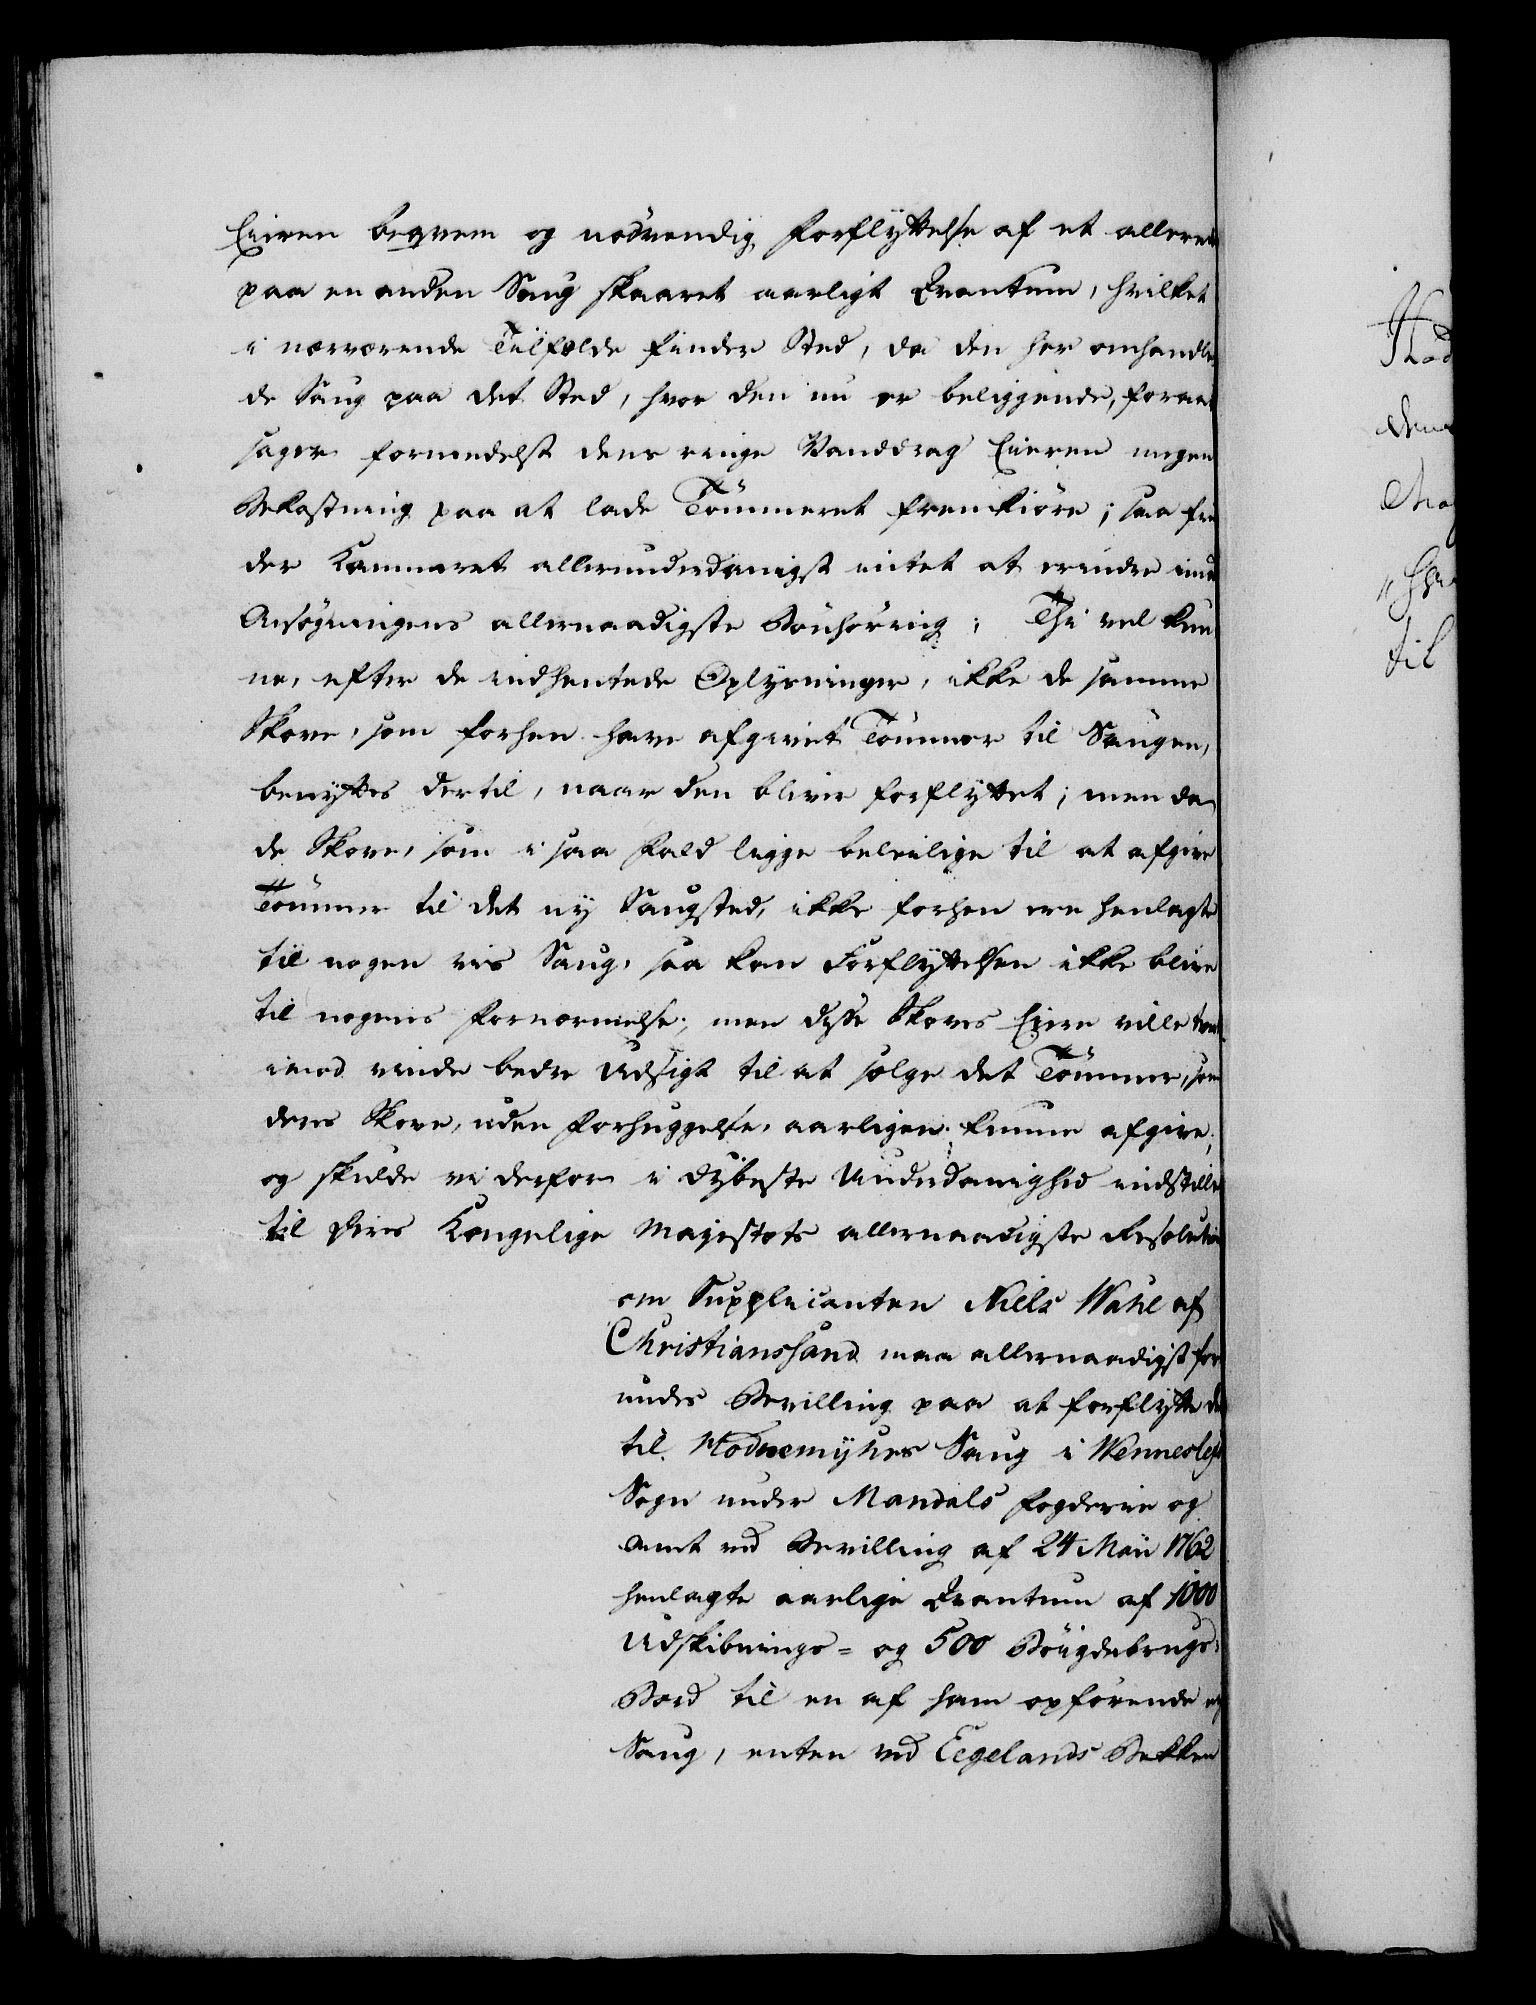 Eieren beqvem og nödvendig Forflyttelse af et allerede
paa en anden Saug skaaret aarligt Qvantum, hvilket
i nærværende Tilfælde finder Sted, da den her omhandle
de Saug paa det Sted, hvor den nu er beliggende, foraar
sager formedelst dens ringe Vanddrag Eieren megen
Bekostning paa at lade Tömmeret fremkiöre; saa fin
der Kammeret allerunderdanigst intet at erindre imod
Ansögningens allernaadigste Bönhörelse; Thi vel kun
ne, efter de indhentede Oplysninger, ikke de samme
Skove, som forhen have afgivet Tömmer til Saugen,
benyttes dertil, naar den bliver forflyttet; men da
de Skove, som i saa Fald ligge beleilige til at afgive
Tömmer til det ny Saugsted, ikke forhen ere henlagte
til nogen vis Saug, saa kan Forflyttelsen ikke blive
til nogens Fornærmelse; men disse Skoves Eiere ville tvert
imod vinde bedre Udsigt til at sælge det Tömmer, som
deres Skove, uden Forhuggelse, aarligen kunne afgive;
og skulde vi derfor i dybeste Underdanighed indstille
til Deres Kongelige Majestæts allernaadigste Resolution
om Supplicanten Niels Wahl af
Christianssand maa allernaadigst for
undes Bevilling paa at forflytte det
til Hodnemyhrs Saug i Wennesleys
Sogn under Mandals Fogderie og
Amt ved Bevilling af 24 Maii 1762
henlagte aarlige Qvantum af 1000
Udskibnings- og 500 Böigdebrugs-
Bord til en af ham opförende ny
Saug, enten ved Eegelands Bekken
Thod
dend
Maj
til